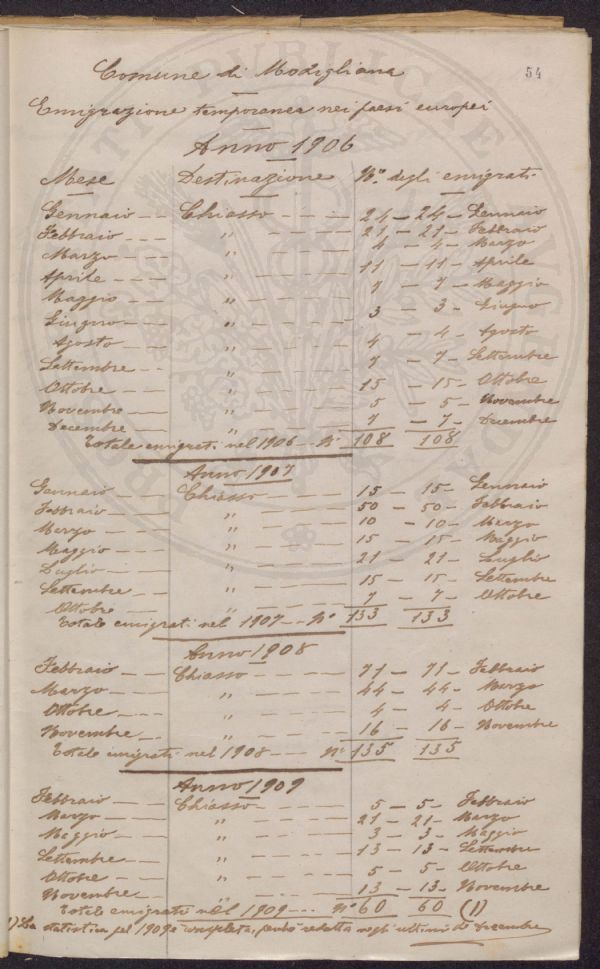 54
Comune di Modigliana
Emigrazione temporanea nei paesi europei
Anno 1906
Mese Destinazione No. degli emigrati
Gennaio -- Chiasso ---- 24 - 24 - Gennaio
Febbraio --- " --- 21 - 21 - Febbraio
Marzo --- " ---- 4 - 4 - Marzo
Aprile --- " ---- 11 - 11 - Aprile
Maggio --- " ---- 7 - 7 - Maggio
Giugno --- " ---- 3 - 3 - Giugno
Agosto --- " ---- 4 - 4 - Agosto
Settembre -- " ---- 7 - 7 - Settembre
Ottobre --- " ---- 15 - 15 - Ottobre
Novembre -- " ---- 5 - 5 - Novembre
Decembre -- " ---- 7 - 7 - Decembre
Totale emigrati nel 1906 -- No 108 108
Anno 1907
Gennaio --- Chiasso ---- 15 - 15 - Gennaio
Febbraio --- " ---- 50 - 50 - Febbraio
Marzo --- " ---- 10 - 10 - Marzo
Maggio --- " ---- 15 - 15 - Maggio
Luglio --- " ---- 21 - 21 - Luglio
Settembre -- " ---- 15 - 15 - Settembre
Ottobre --- " ---- 7 - 7 - Ottobre
Totale emigrati nel 1907 -- No 133 133
Anno 1908
Febbraio --- Chiasso ---- 71 - 71 - Febbraio
Marzo --- " ---- 44 - 44 - Marzo
Ottobre --- " ---- 4 - 4 - Ottobre
Novembre -- " ---- 16 - 16 - Novembre
Totale emigrati nel 1908 --- No 135 135
Anno 1909
Febbraio --- Chiasso ---- 5 - 5 - Febbraio
Marzo --- " ---- 21 - 21 - Marzo
Maggio --- " ---- 3 - 3 - Maggio
Settembre -- " ---- 13 - 13 - Settembre
Ottobre --- " ---- 5 - 5 - Ottobre
Novembre -- " ---- 13 - 13 - Novembre
Totale emigrati nel 1909 --- No 60 60 (1)
1) La statistica pel 1909 è completa, perchè redatta negli ultimi di decembre